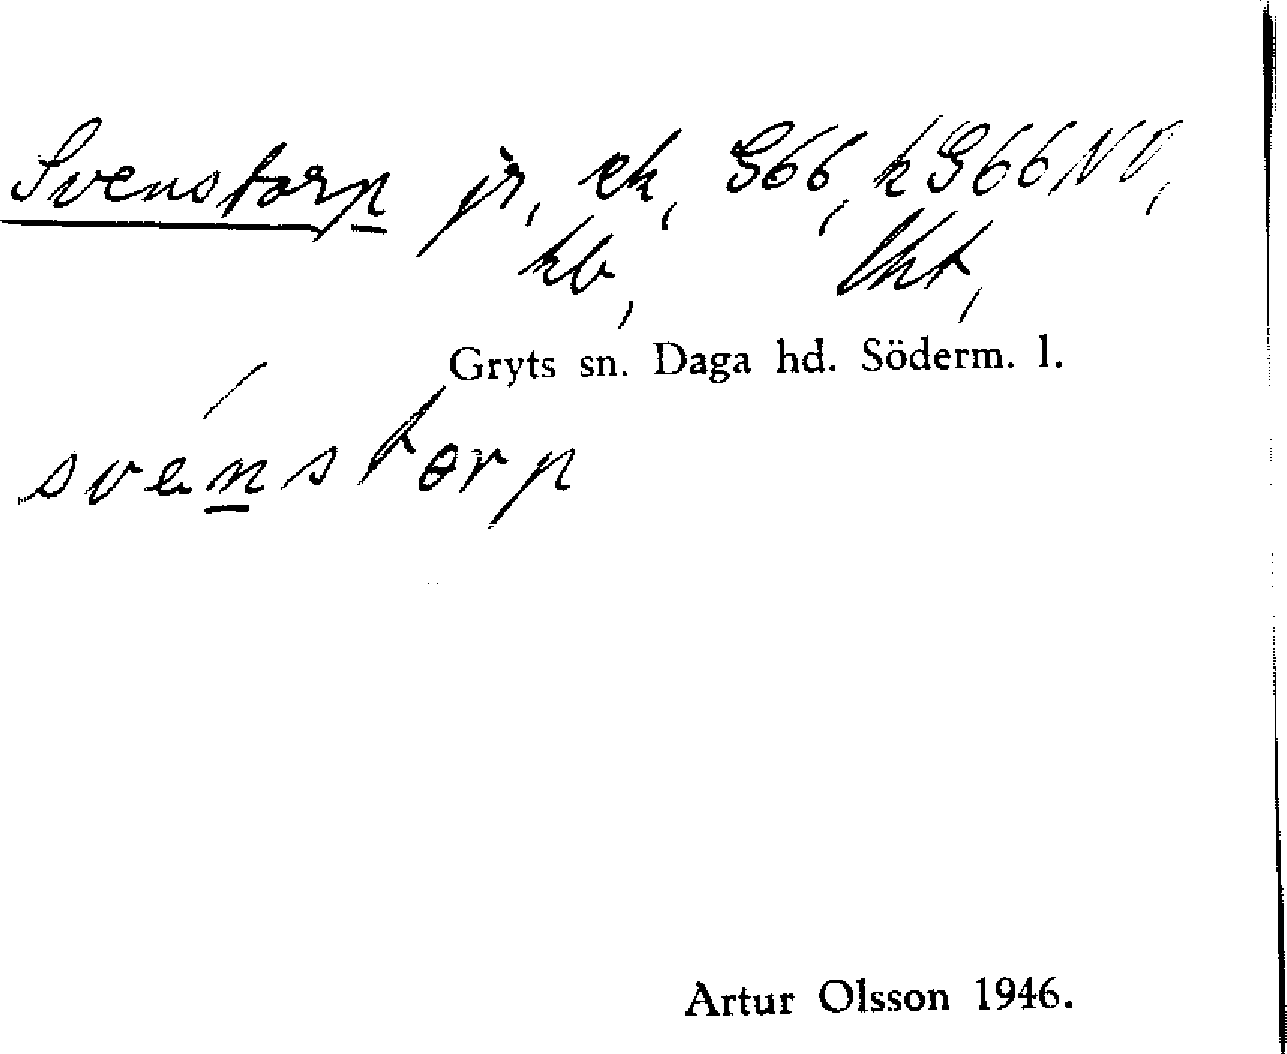 Svenstorp jr, ek, G66, k G66 NO,
kb, lht,
Gryts sn. Daga hd. Söderm. l.
svénstorp
Artur Olsson 1946.